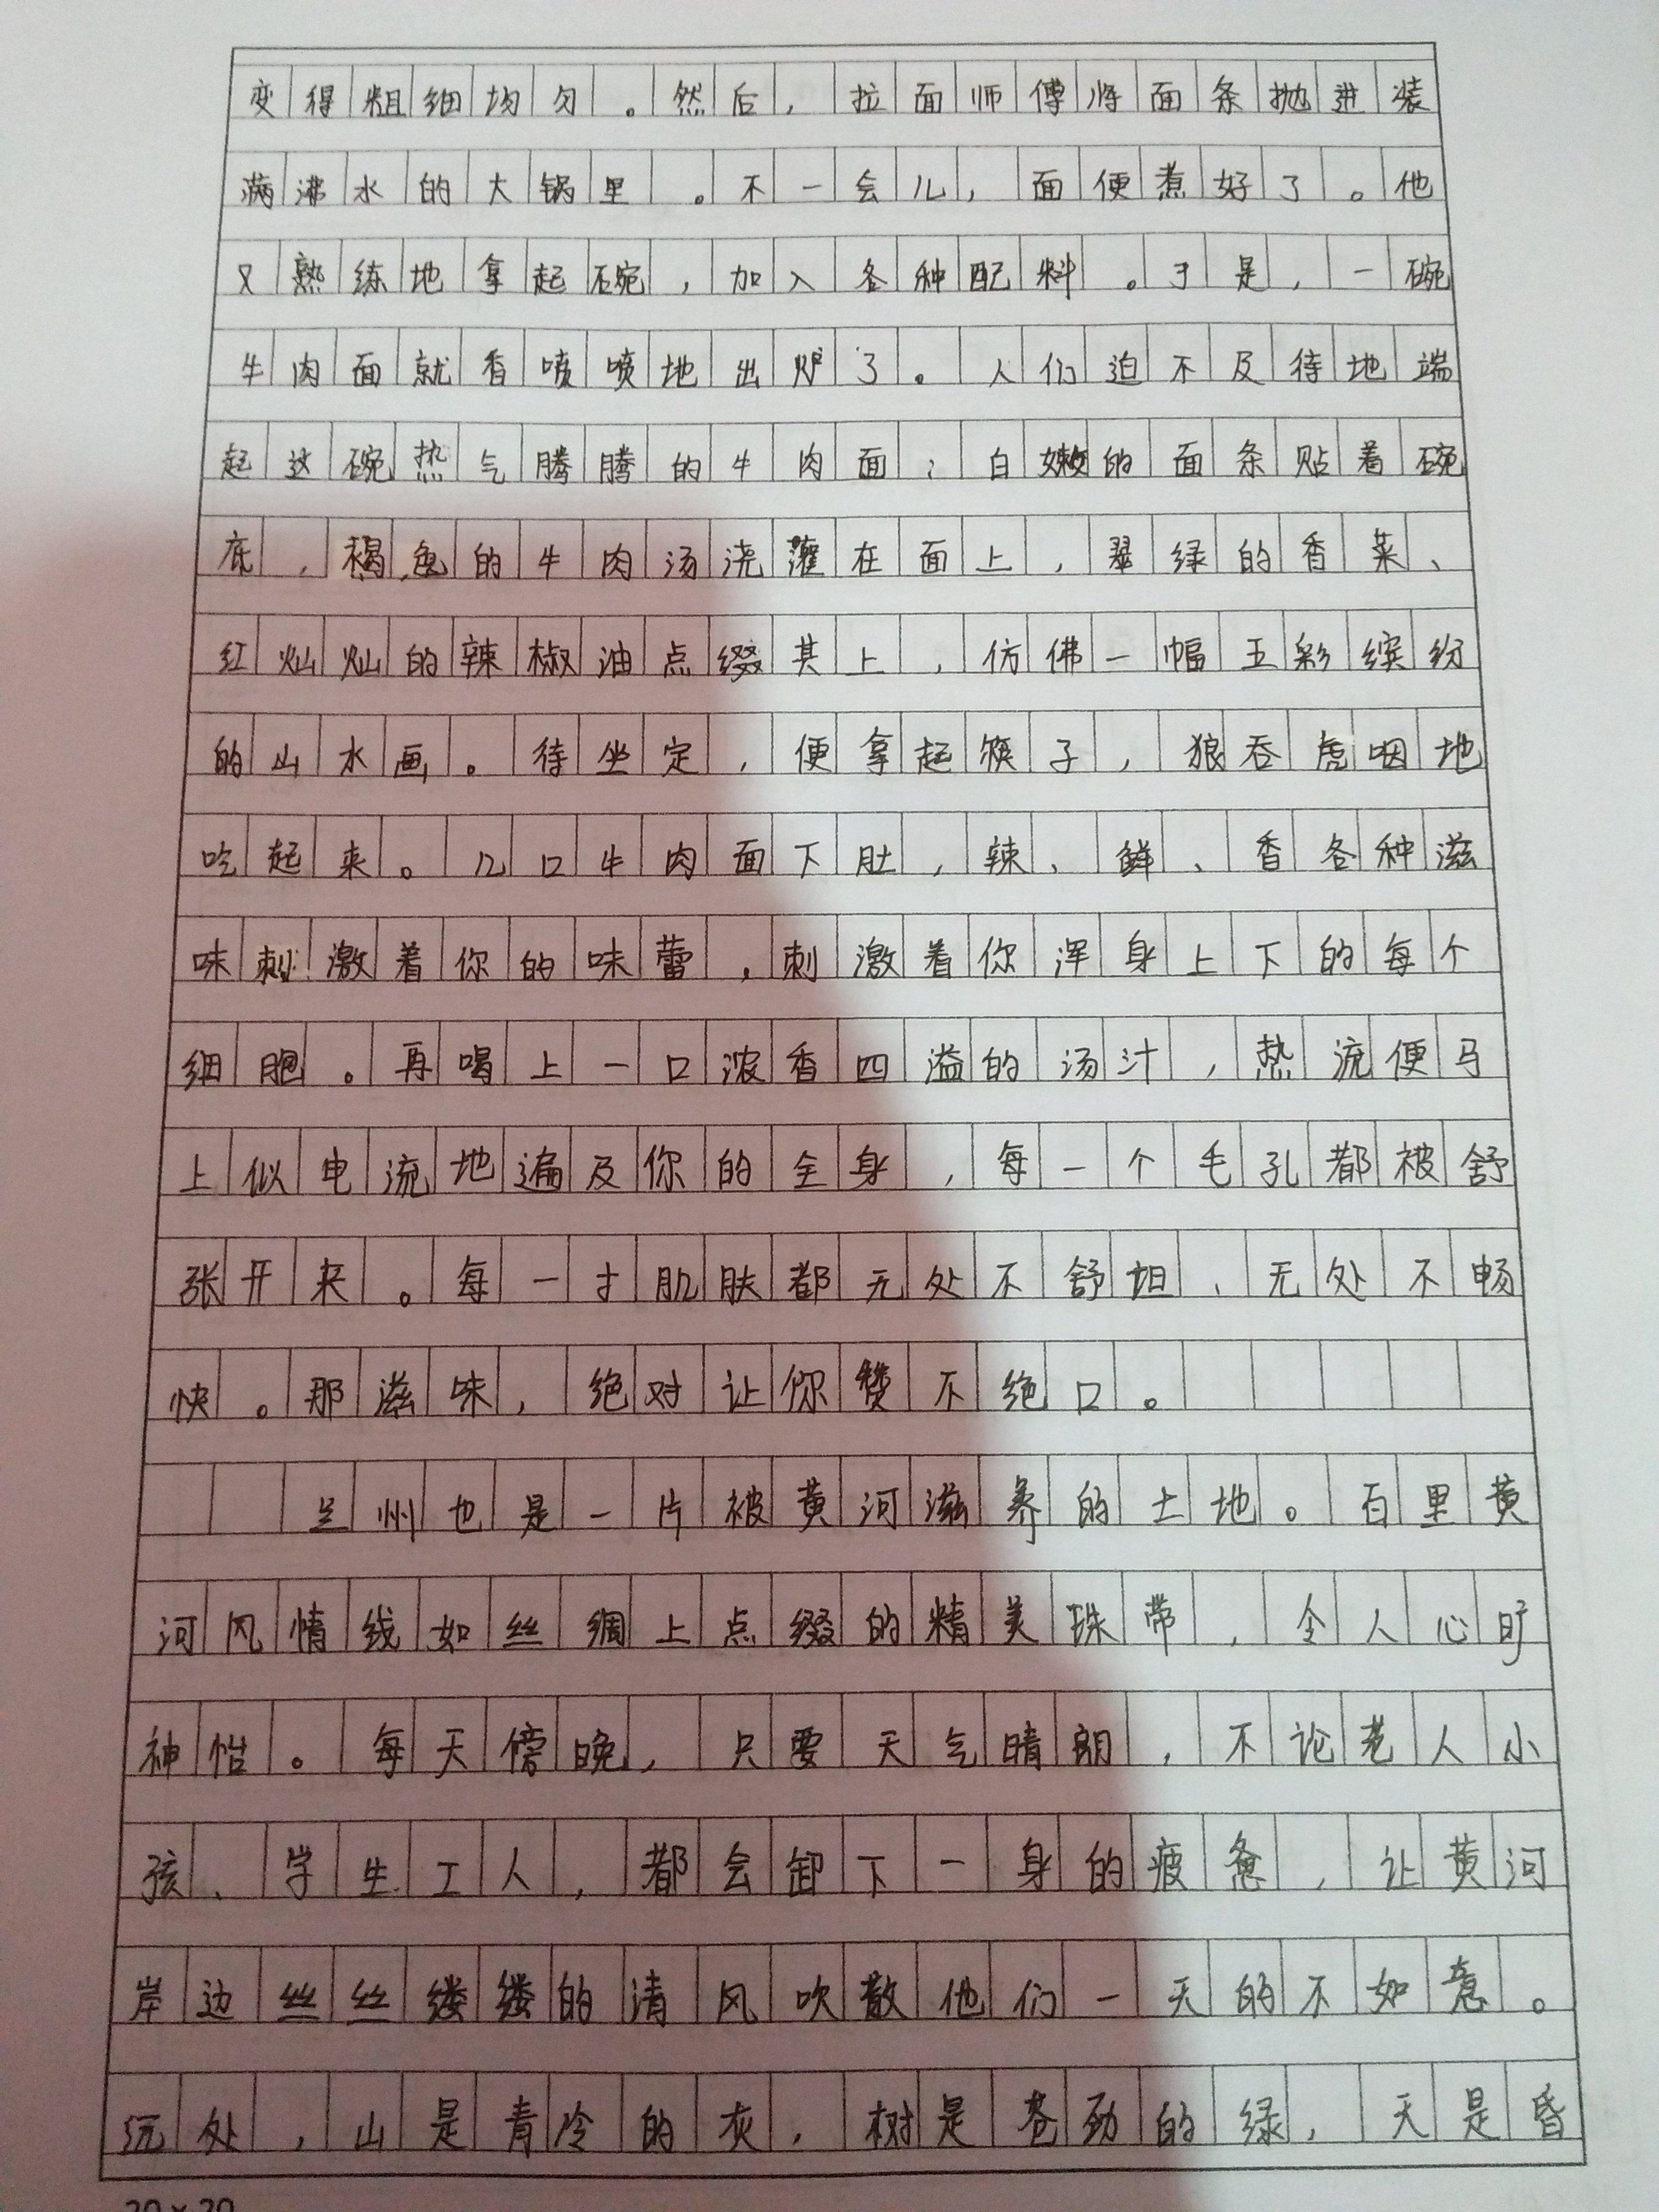 变得粗细均匀。然后，拉面师傅将面条抛进装
满沸水的大锅里。不一会儿，面便煮好了。他
又熟练地拿起碗，加入各种配料。于是，一碗
牛肉面就香喷喷地出炉了。人们迫不及待地端
起这碗热气腾腾的牛肉面；白嫩的面条贴着碗
底，褐色的牛肉汤浇灌在面上，翠绿的香菜、
红灿灿的辣椒油点缀其上，仿佛一幅五彩缤纷
的山水画。待坐定，便拿起筷子，狼吞虎咽地
吃起来。几口牛肉面下肚，辣、鲜、香各种滋
味刺激着你的味蕾，刺激着你浑身上下的每个
细胞。再喝上一口浓香四溢的汤汁，热流便马
上似电流地遍及你的全身，每一个毛孔都被舒
张开来。每一寸肌肤都无处不舒坦、无处不畅
快。那滋味，绝对让你赞不绝口。
兰州也是一片被黄河滋养的土地。百里黄
河风情线如丝绸上点缀的精美珠带，令人心旷
神怡。每天傍晚，只要天气晴朗，不论老人小
孩、学生工人，都会卸下一身的疲惫，让黄河
岸边丝丝缕缕的清风吹散他们一天的不如意。
远处，山是青冷的灰，树是苍劲的绿，天是昏
20×20